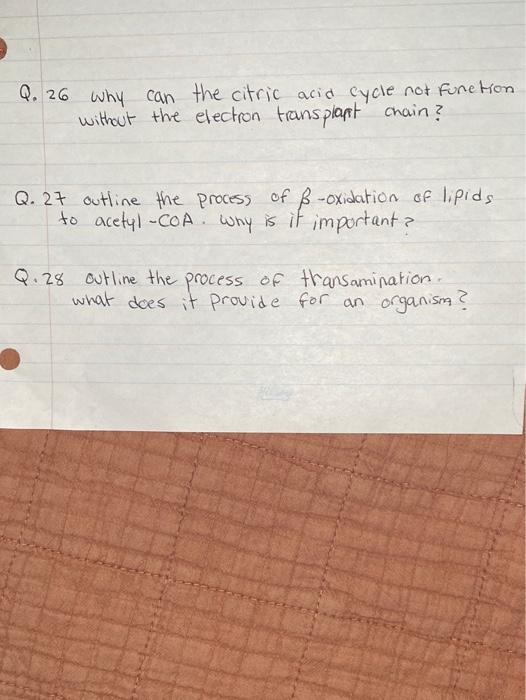 Q. 26 why can the citric acid cycle not function
without the electron transplant chain?
Q. 27 outline the process of β-oxidation of lipids
to acetyl-COA. why is it important?
Q. 28 outline the process of transamination.
what does it provide for an organism?